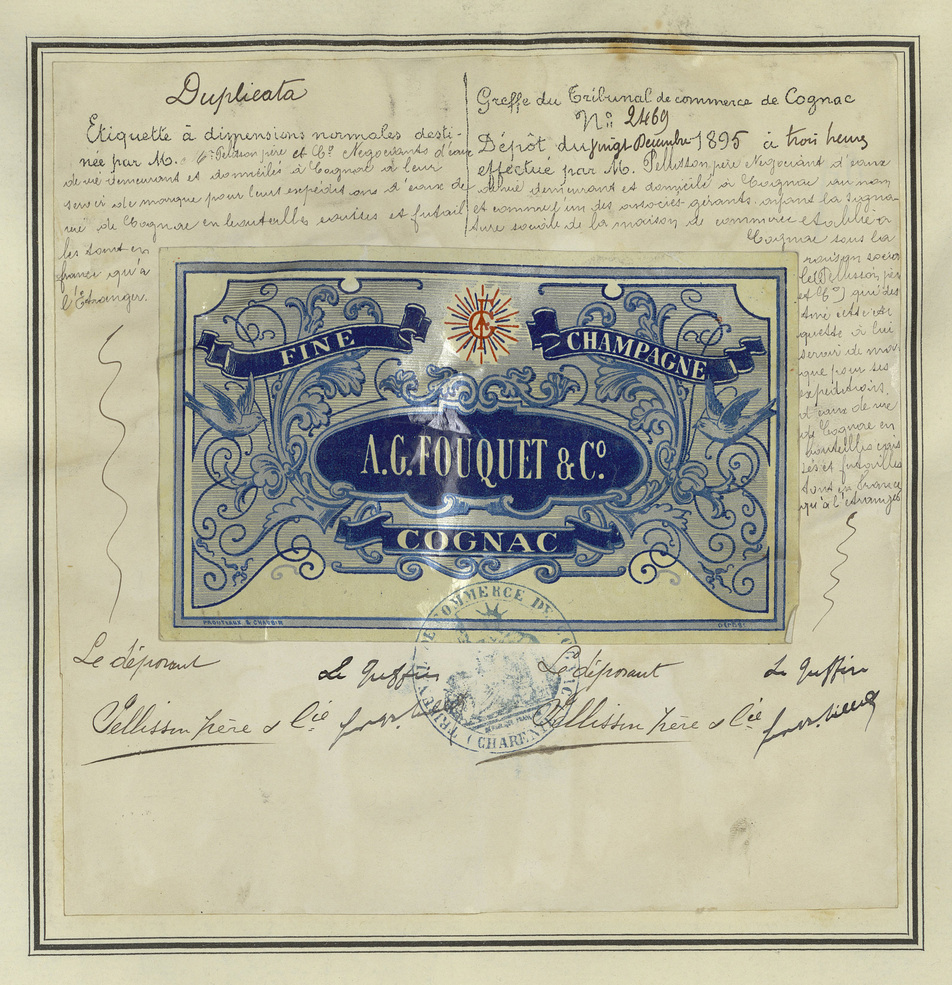 Duplicata
Etiquette à dimensions normales desti-
née par M. Pellisson père et Cº Negociants d'eaux
de vie demeurant et domiciliés à Cognac à leur
servir de marque pour leurs expéditions d'eaux de
vie de Cognac en bouteilles caisses et futail
les tant en
france qu'à
l'Etranger.
Greffe du Tribunal de commerce de Cognac
Nº 2469
Dépôt du vingt Décembre 1895 à trois heures
effectué par M. Pellisson père Negociant d'eaux
de vie demeurant et domicilié à Cognac au nom
et comme l'un des associés gérants ayant la signa-
ture sociale de la maison de commerce etablie à
Cognac sous la
raison socia
le (Pellisson père
et Cº) qui des
tine cette eti
quette à lui
servir de mar
que pour ses
expéditions
d'eaux de vie
de Cognac en
bouteilles cais
ses et futailles
tant en france
qu'à l'étranger
FINE
AG
CHAMPAGNE
A.G. FOUQUET & Cº
COGNAC
DÉPOSÉ
COMMERCE DE
Le déposant
Le Greffier
Le déposant
Le Greffier
Pellisson père & Cie
Pellisson père & Cie